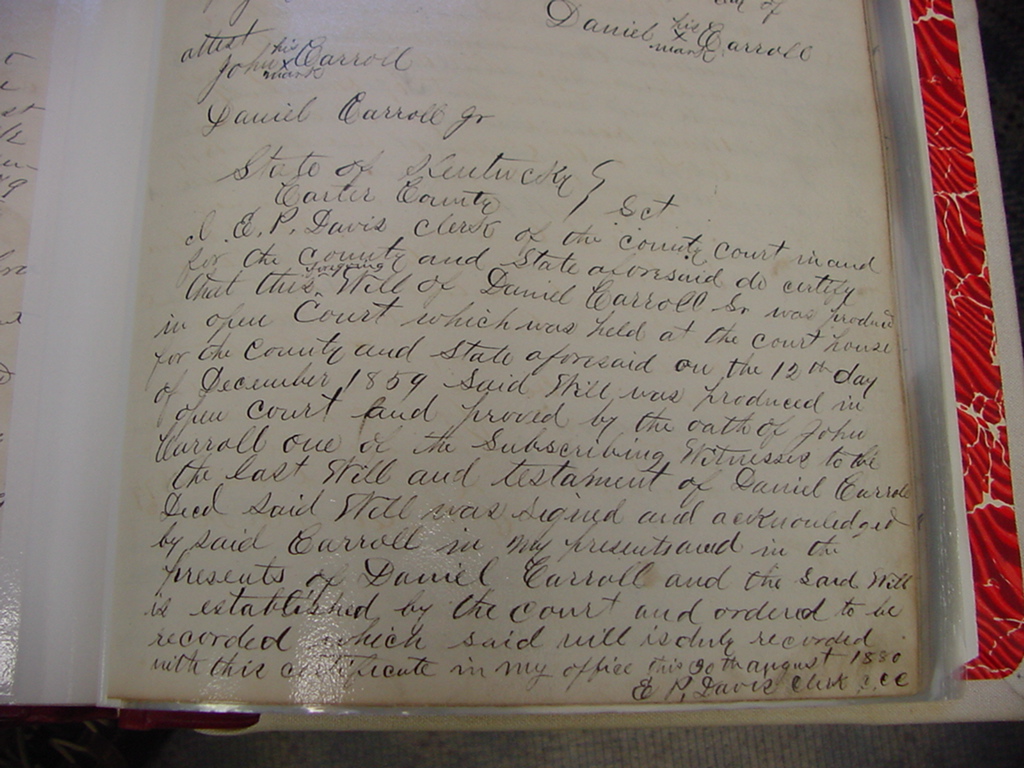 day of
his
Daniel x Carroll
mark
attest his
John x Carroll
mark
Daniel Carroll Jr
State of Kentucky }
Carter County } Sct
I. E. P. Davis Clerk of the County Court in and
for the County and State aforesaid do certify
that this forgoing Will of Daniel Carroll Sr was produced
in open Court which was held at the court house
for the County and State aforesaid on the 12th day
of December 1859 Said Will was produced in
open court and proved by the oath of John
Carroll one of the Subscribing Witnesses to be
the last Will and testament of Daniel Carroll
Decd said Will was signed and acknowledged
by said Carroll in my presents and in the
presents of Daniel Carroll and the Said Will
is established by the court and ordered to be
recorded which said will is duly recorded
with this certificate in my office this 30th august 1880
E P, Davis Clerk C C C